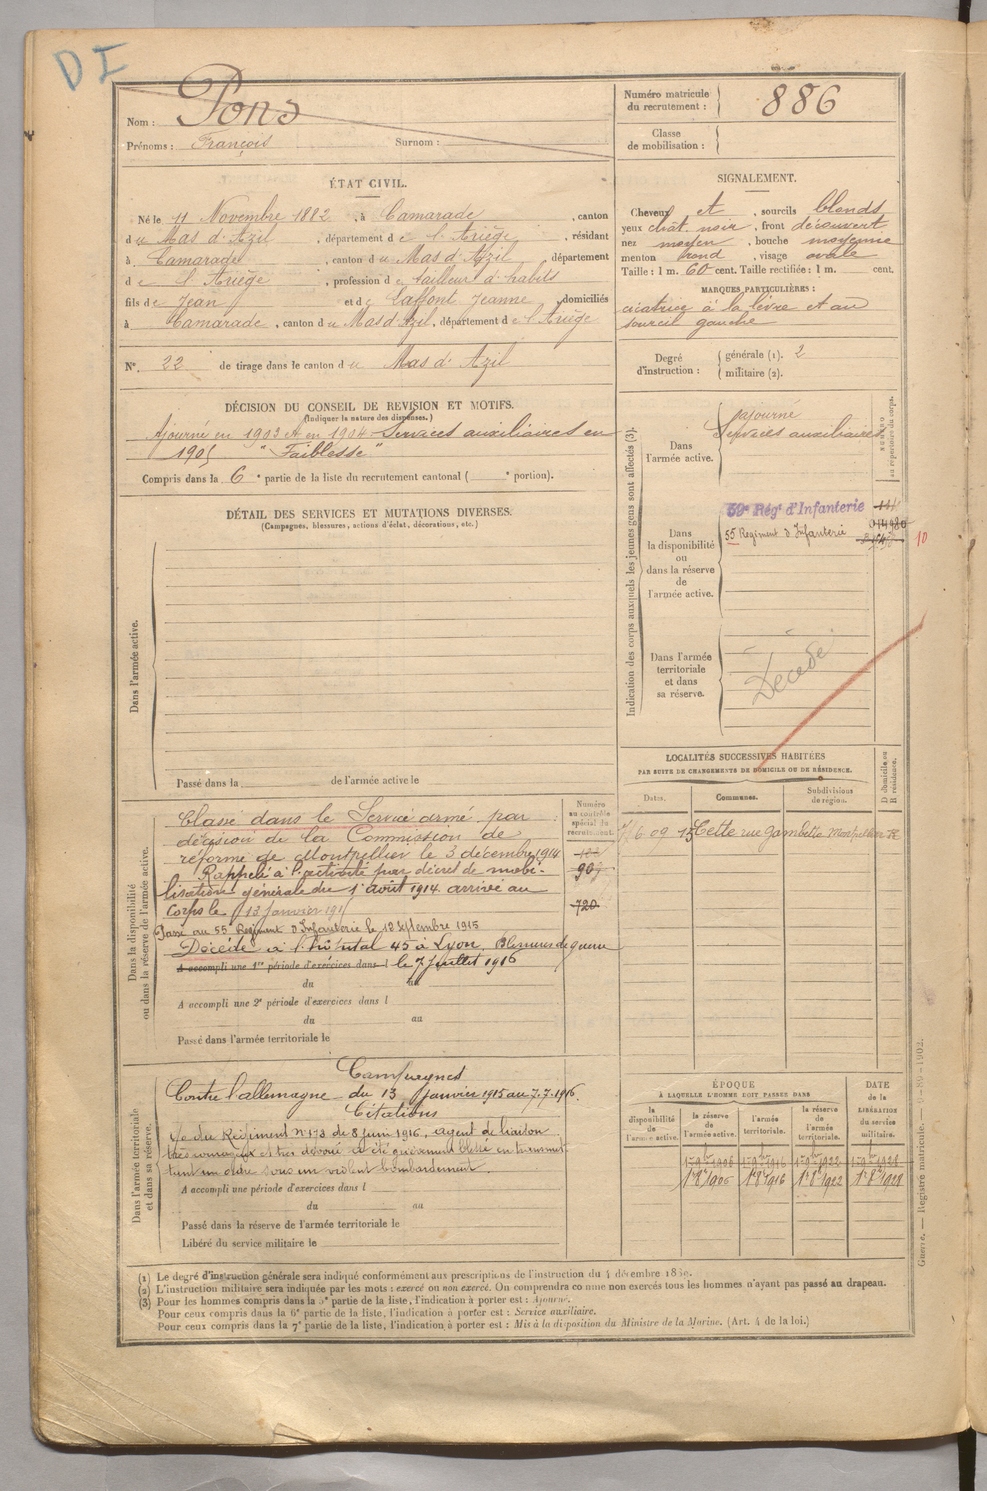 DI
Nom : Pons
Prénoms : François Surnom :
Numéro matricule du recrutement : 886
Classe de mobilisation :
ÉTAT CIVIL.
Né le 11 Novembre 1882, à Camarade, canton
du Mas d'Azil, département de l'Ariège, résidant
à Camarade, canton du Mas d'Azil, département
de l'Ariège, profession de tailleur d'habits
fils de Jean et de Laffont Jeanne, domiciliés
à Camarade, canton du Mas d'Azil, département de l'Ariège
N° 22 de tirage dans le canton du Mas d'Azil
SIGNALEMENT.
Cheveux et, sourcils blonds
yeux chât. noir, front découvert
nez moyen, bouche moyenne
menton rond, visage ovale
Taille : 1 m. 60 cent. Taille rectifiée : 1 m. cent.
MARQUES PARTICULIÈRES :
cicatrice à la lèvre et au
sourcil gauche
Degré d'instruction : générale (1). 2
militaire (2).
DÉCISION DU CONSEIL DE REVISION ET MOTIFS.
(Indiquer la nature des dispenses.)
Ajourné en 1903 et en 1904 Services auxiliaires en
1905 "Faiblesse"
Compris dans la 6e partie de la liste du recrutement cantonal ( e portion).
DÉTAIL DES SERVICES ET MUTATIONS DIVERSES.
(Campagnes, blessures, actions d'éclat, décorations, etc.)
Dans l'armée active.
Passé dans la de l'armée active le
Indication des corps auxquels les jeunes gens sont affectés (3).
NUMÉRO au répertoire du corps.
Dans l'armée active.
ajourné
Services auxiliaires
Dans la disponibilité ou dans la réserve de l'armée active.
59e Régt d'Infanterie
55 Régiment d'Infanterie
10
Dans l'armée territoriale et dans sa réserve.
Décédé
LOCALITÉS SUCCESSIVES HABITÉES
PAR SUITE DE CHANGEMENTS DE DOMICILE OU DE RÉSIDENCE.
Dates. Communes. Subdivisions de région. D domicile ou R résidence.
6.09 Cette rue Gambetta Montpellier R
Dans la disponibilité ou dans la réserve de l'armée active.
Numéro au contrôle spécial du recrutement.
Classé dans le Service armé par
décision de la Commission de
réforme de Montpellier le 3 décembre 1914
Rappelé à l'activité par décret de mobi-
lisation générale du 1er août 1914 arrivé au
Corps le 13 janvier 191
Passé au 55 Régiment d'Infanterie le 12 septembre 1915
Décédé à l'hôpital 45 à Lyon, Blessures de guerre
A accompli une 1re période d'exercices dans l le 7 juillet 1916
du au
909
720
A accompli une 2e période d'exercices dans l
du au
Passé dans l'armée territoriale le
Dans l'armée territoriale et dans sa réserve.
Campagnes
Contre l'allemagne du 13 janvier 1915 au 7.7.1916.
Citations
du Régiment n° 173 du 8 juin 1916, agent de liaison
très courageux et très dévoué. A été gravement blessé en transmet-
tant un ordre sous un violent bombardement.
A accompli une période d'exercices dans l
du au
Passé dans la réserve de l'armée territoriale le
Libéré du service militaire le
ÉPOQUE
À LAQUELLE L'HOMME DOIT PASSER DANS
la disponibilité de l'armée active. la réserve de l'armée active. l'armée territoriale. la réserve de l'armée territoriale.
DATE de la LIBÉRATION du service militaire.
1er 9bre 1906 1er 9bre 1916 1er 9bre 1922 1er 9bre 1928
1er 8bre 1906 1er 8bre 1916 1er 8bre 1922 1er 8bre 1928
(1) Le degré d'instruction générale sera indiqué conformément aux prescriptions de l'instruction du 4 décembre 1889.
(2) L'instruction militaire sera indiquée par les mots : exercé ou non exercé. On comprendra comme non exercés tous les hommes n'ayant pas passé au drapeau.
(3) Pour les hommes compris dans la 5e partie de la liste, l'indication à porter est : Ajourné.
Pour ceux compris dans la 6e partie de la liste, l'indication à porter est : Service auxiliaire.
Pour ceux compris dans la 7e partie de la liste, l'indication à porter est : Mis à la disposition du Ministre de la Marine. (Art. 4 de la loi.)
Guerre. — Registre matricule. — 1902.